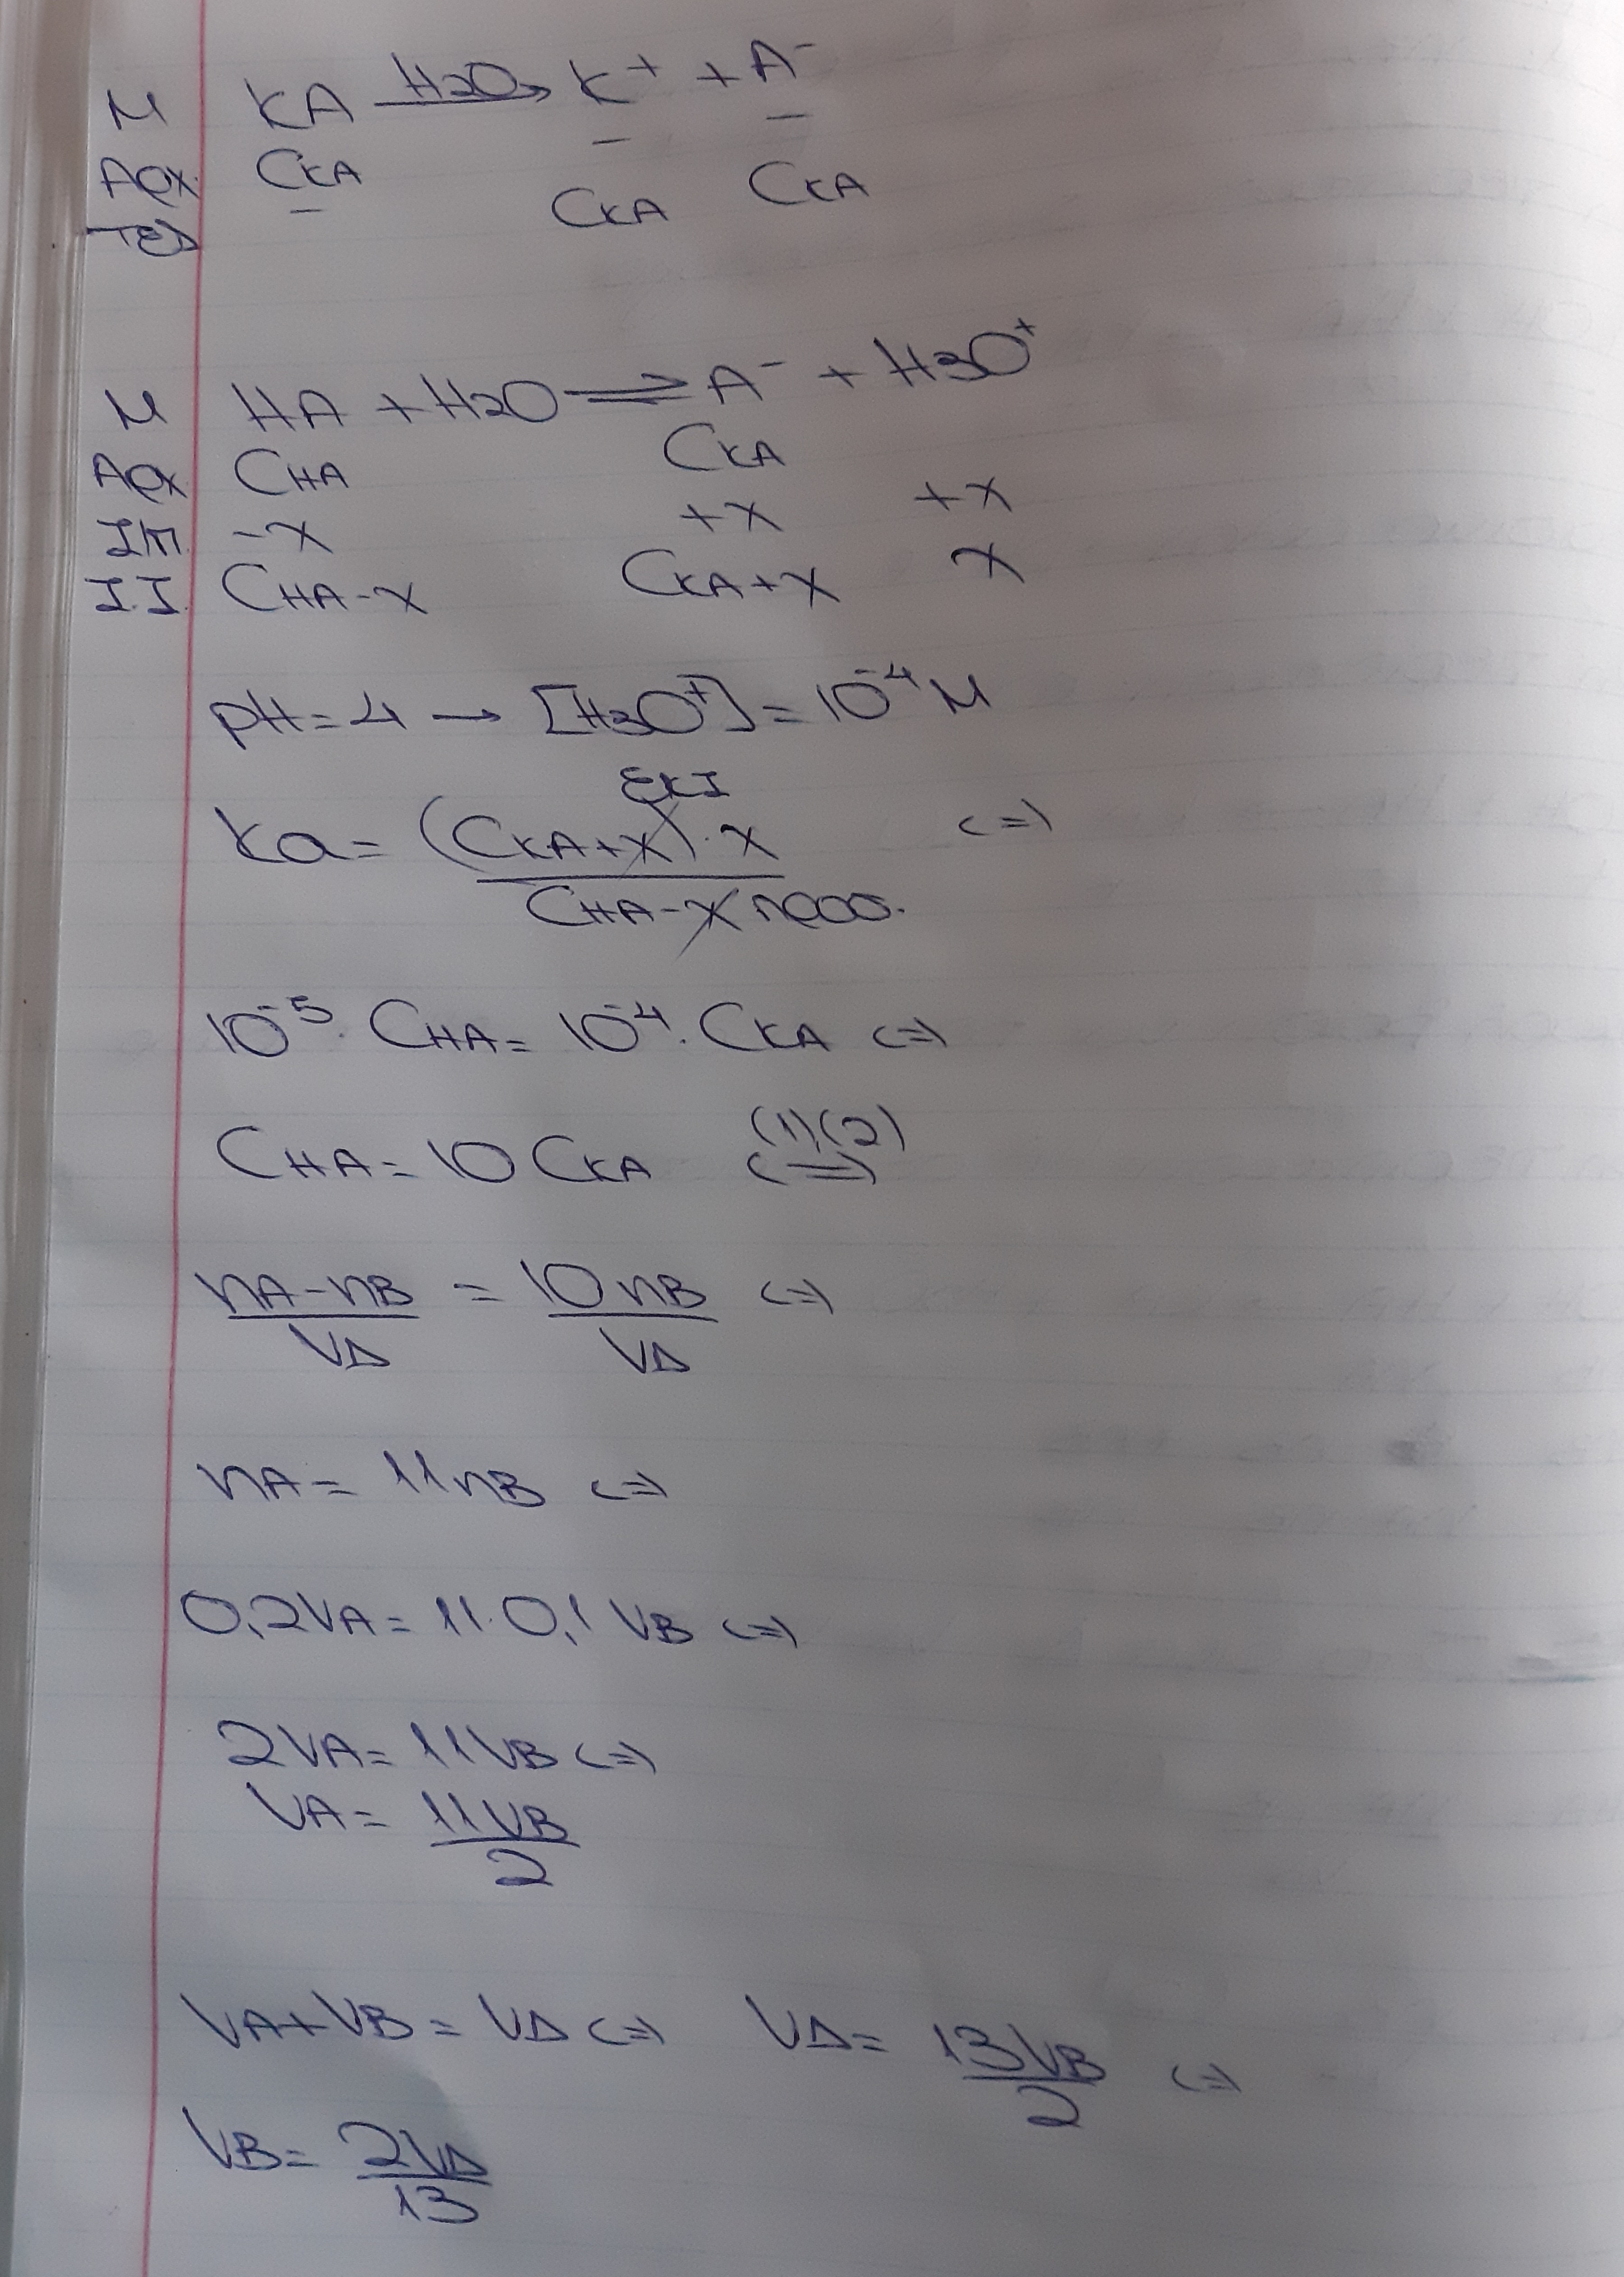 M KA H2O→ K+ + A-
Αρχ. CKA - -
Τελ - CKA CKA
M HA + H2O ⇌ A- + H3O+
Αρχ CHA CKA
Ιπ. -x +x +x
Ι.Ι. CHA-x CKA+x x
pH=4 → [H3O+]=10^-4 M
ΕΚΙ
Ka= (CKA+x)·x / CHA-x προσ. <=>
10^-5 · CHA= 10^-4 · CKA <=>
CHA= 10 CKA (1),(2) <=>
nA-nB / VΔ = 10nB / VΔ <=>
nA= 11nB <=>
0,2VA= 11·0,1VB <=>
2VA= 11VB <=>
VA= 11VB / 2
VA+VB= VΔ <=> VΔ= 13VB / 2 <=>
VB= 2VΔ / 13